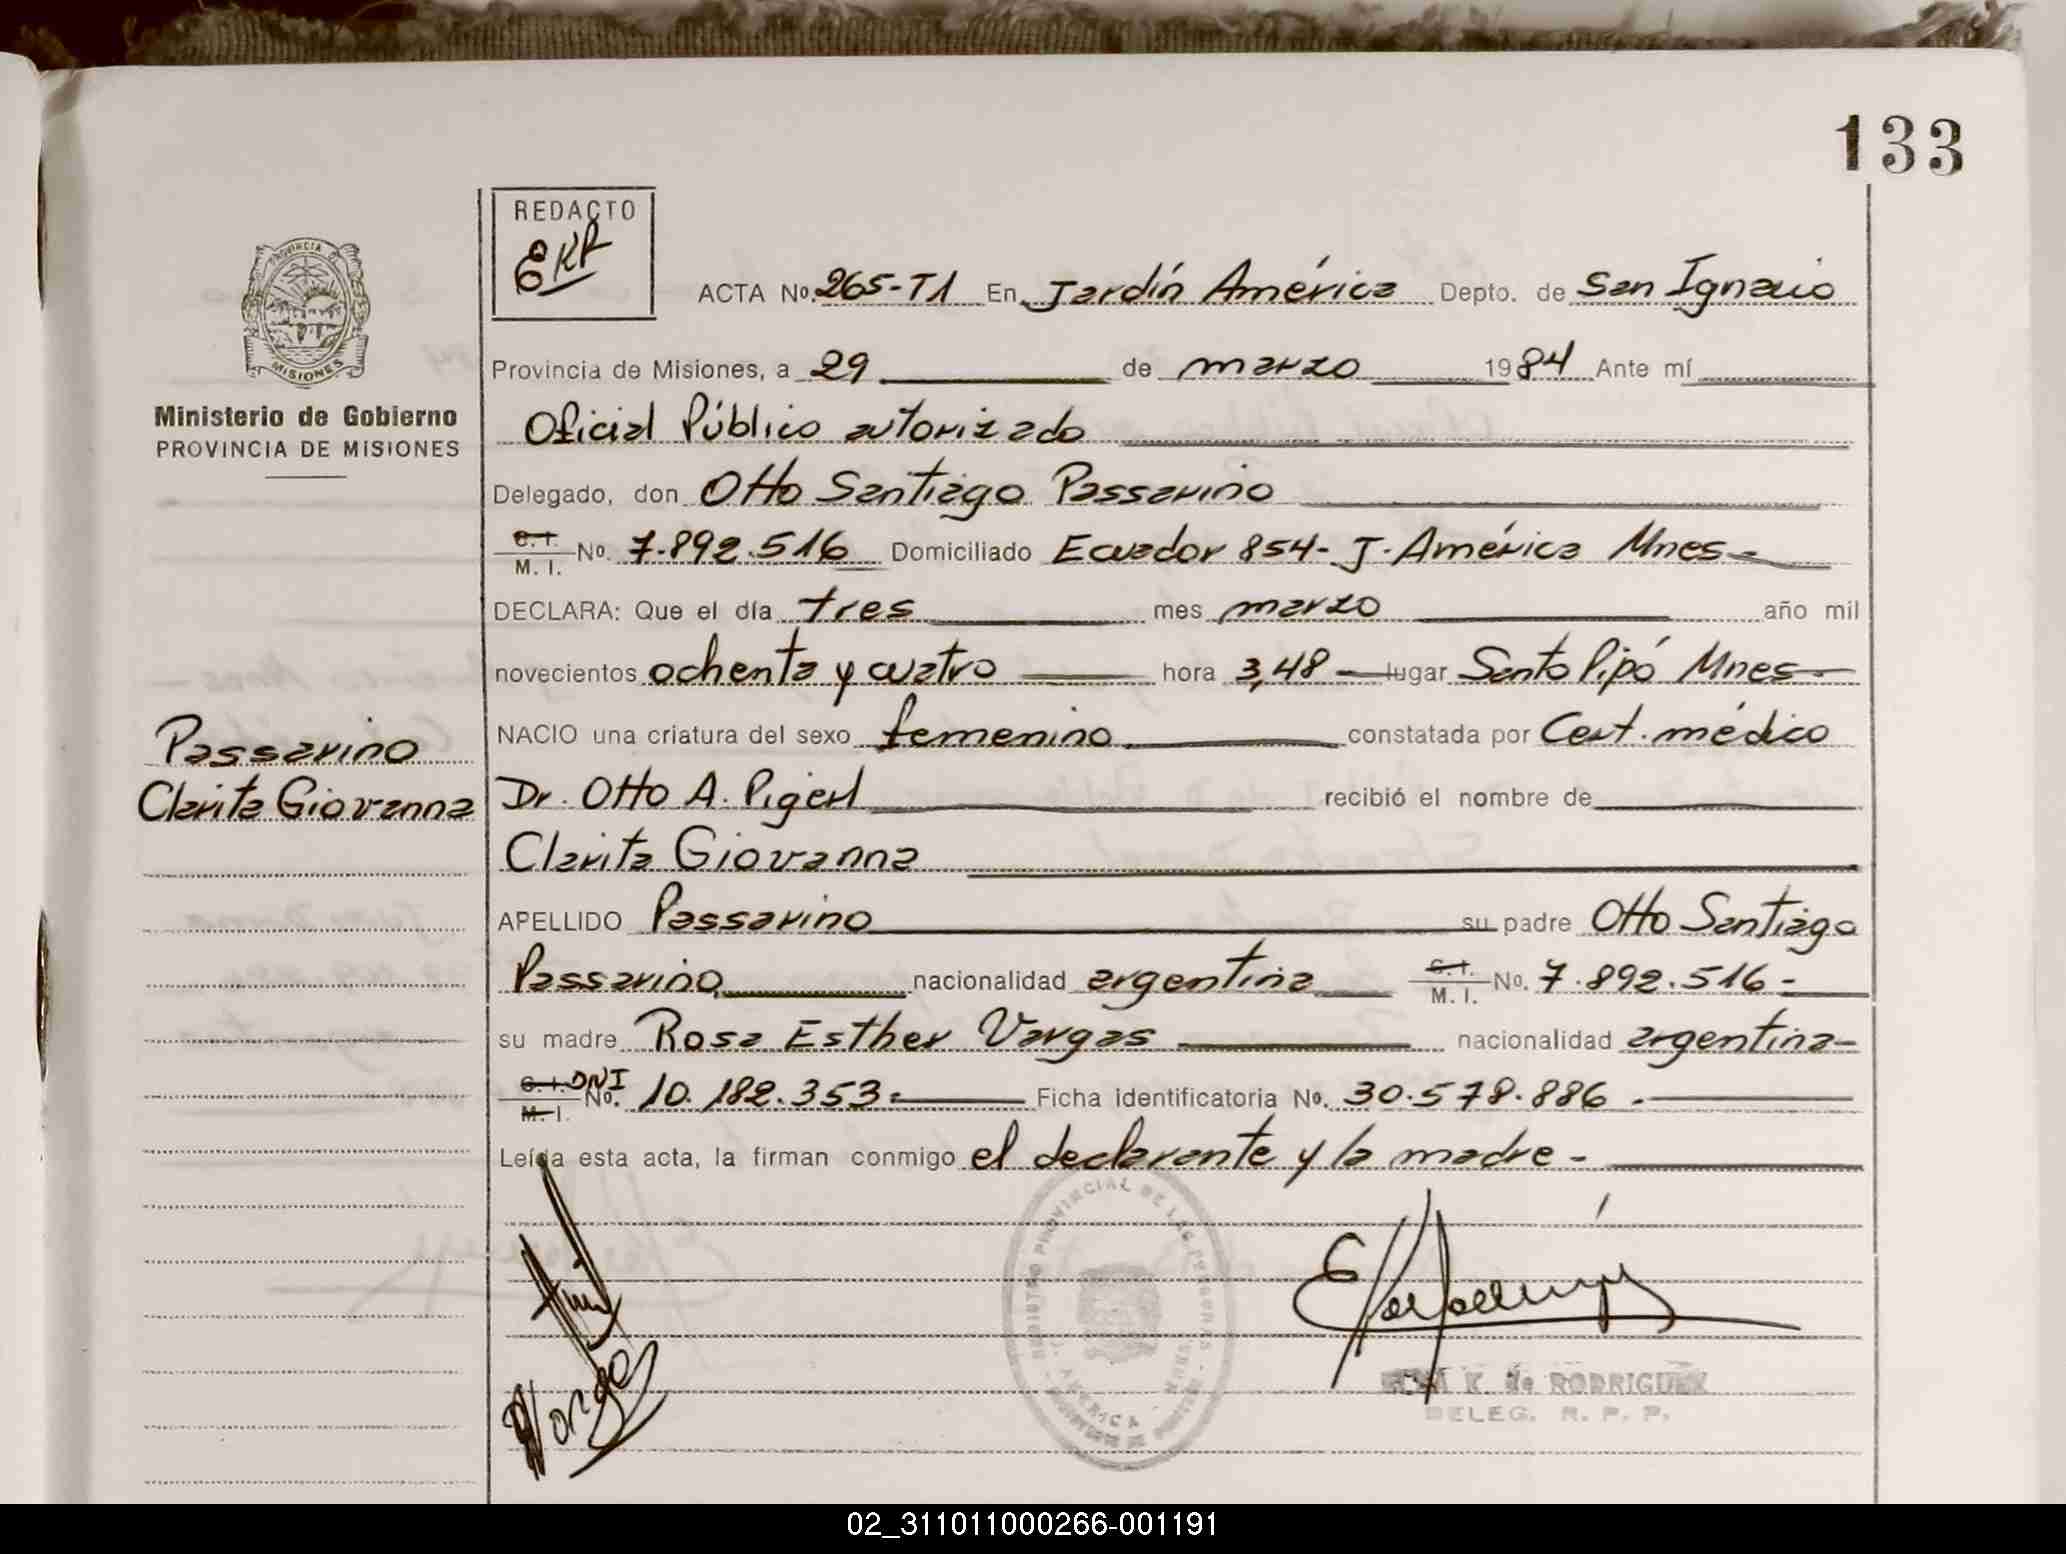 133
REDACTO
EKR
PROVINCIA DE
MISIONES
Ministerio de Gobierno
PROVINCIA DE MISIONES
ACTA Nº. 265-T1 En Jardín América Depto. de San Ignacio
Provincia de Misiones, a 29 de marzo 1984 Ante mí
Oficial Público autorizado
Delegado, don Otto Santiago Passarino
C.I. M. I. Nº. 7.892.516 Domiciliado Ecuador 854- J. América Mnes-
DECLARA: Que el día tres mes marzo año mil
novecientos ochenta y cuatro hora 3,48 lugar Santo Pipó Mnes-
NACIO una criatura del sexo femenino constatada por Cert. médico
Passarino
Clarita Giovanna
Dr. Otto A. Pigerl recibió el nombre de
Clarita Giovanna
APELLIDO Passarino su padre Otto Santiago
Passarino nacionalidad argentina C.I. M. I. Nº. 7.892.516-
su madre Rosa Esther Vargas nacionalidad argentina-
C.I. M.I. DNI Nº. 10.182.353- Ficha identificatoria Nº. 30.578.886.-
Leída esta acta, la firman conmigo el declarante y la madre-
REGISTRO PROVINCIAL DE LAS PERSONAS
AMERICA
Vargas
K. de RODRIGUEZ
DELEG. R. P. P.
02_311011000266-001191